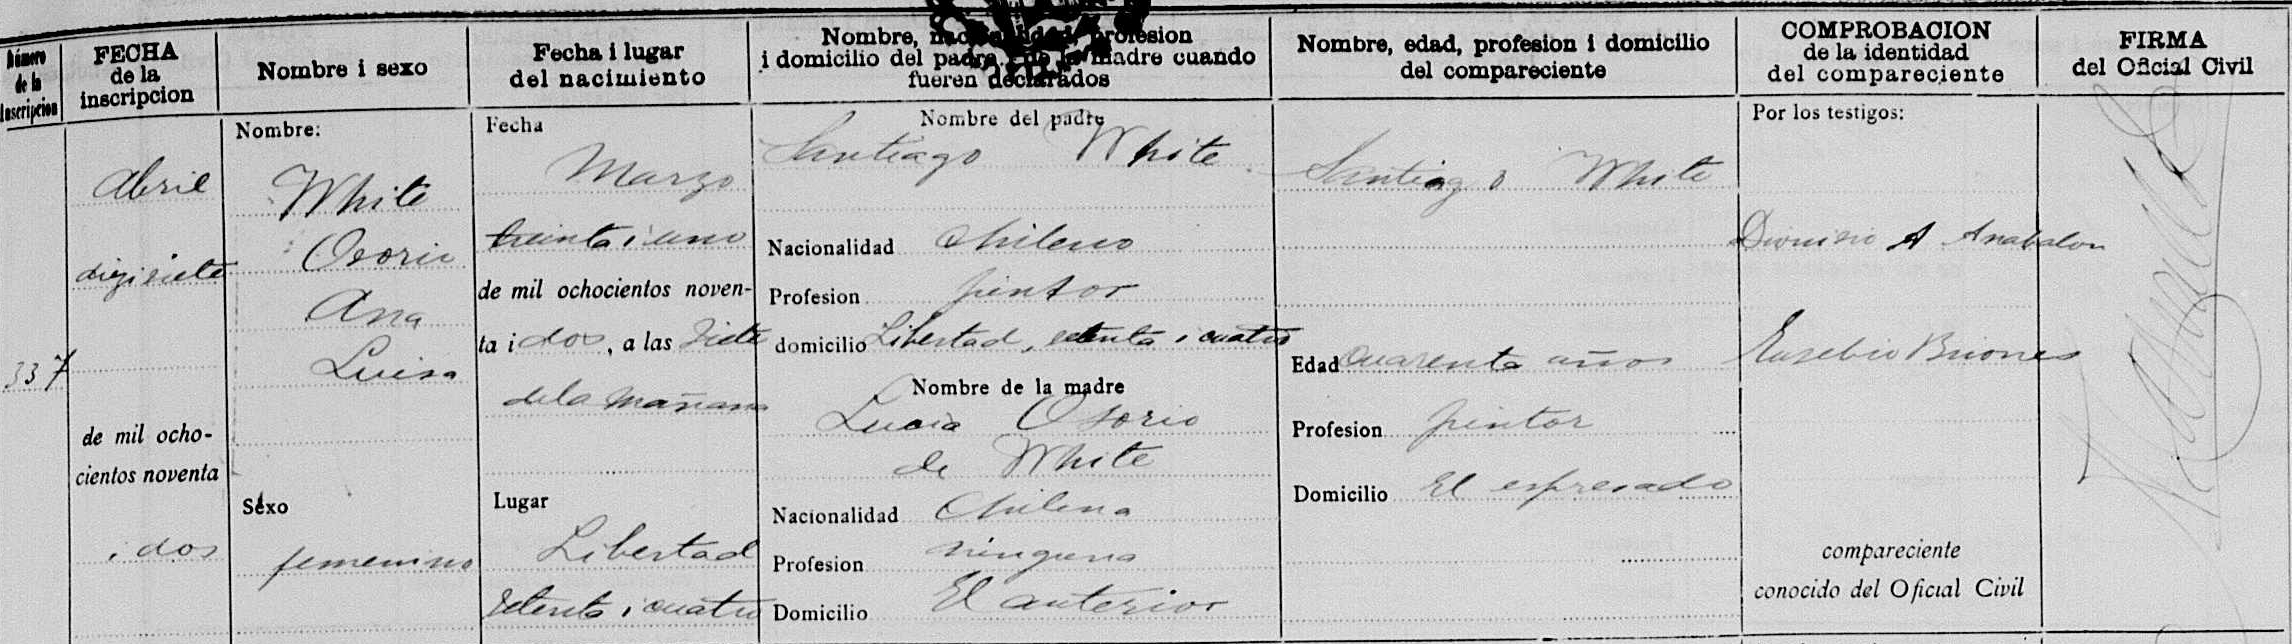 Número
de la
Inscripcion
FECHA
de la
inscripcion
Nombre i sexo
Fecha i lugar
del nacimiento
Nombre, nacionalidad, profesion
i domicilio del padre i de la madre cuando
fueren declarados
Nombre, edad, profesion i domicilio
del compareciente
COMPROBACION
de la identidad
del compareciente
FIRMA
del Oficial Civil
337
Abril
diezisiete
de mil ocho-
cientos noventa
i dos
Nombre:
White
Osorio
Ana
Luisa
Sexo
femenino
Fecha
Marzo
treinta i uno
de mil ochocientos noven-
ta i dos, a las siete
de la mañana
Lugar
Libertad
setenta i cuatro
Nombre del padre
Santiago White
Nacionalidad chileno
Profesion pintor
domicilio Libertad, setenta i cuatro
Nombre de la madre
Lucia Osorio
de White
Nacionalidad Chilena
Profesion ninguna
Domicilio El anterior
Santiago White
Edad cuarenta años
Profesion pintor
Domicilio El espresado
Por los testigos:
Dionisio A Anabalon
Eusebio Briones
compareciente
conocido del Oficial Civil